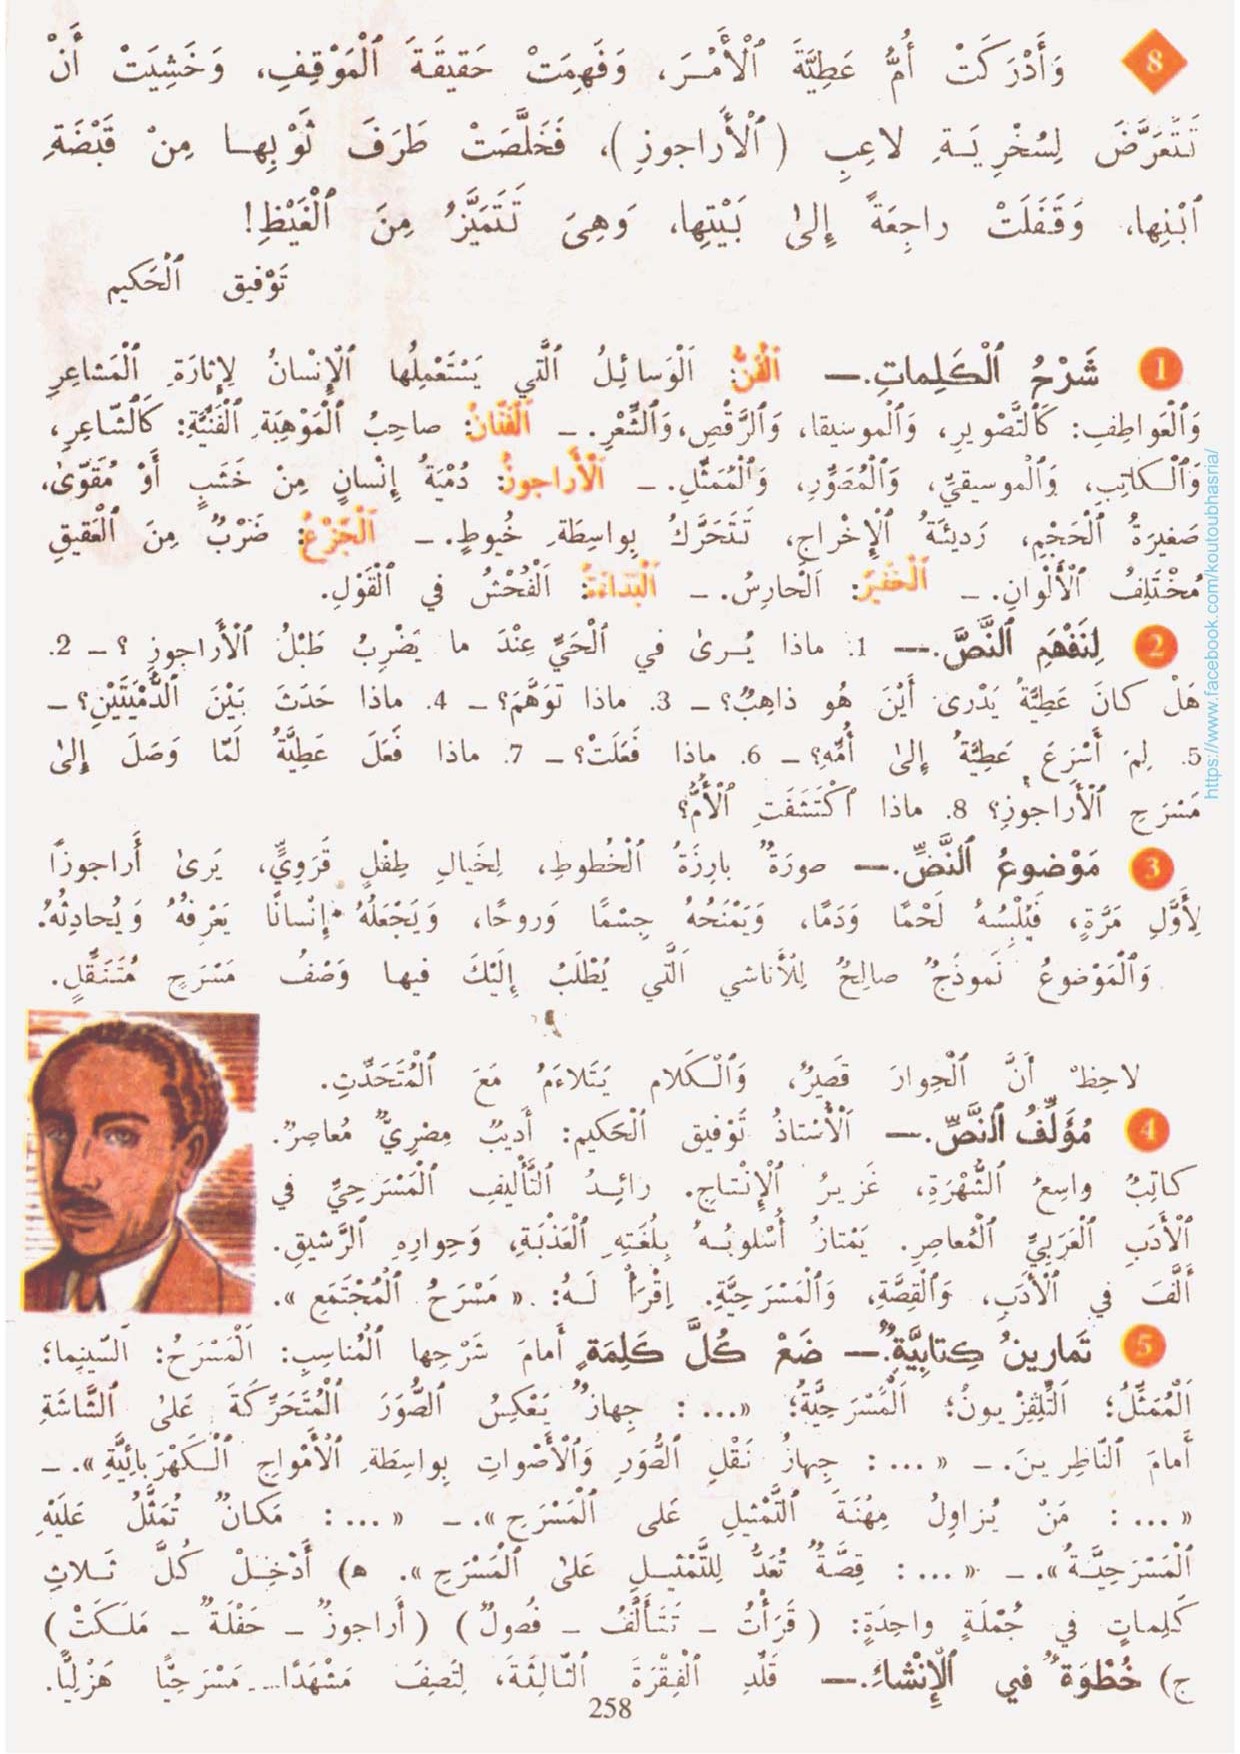 8 وَأَدْرَكَتْ أُمُّ عَطِيَّةَ ٱلْأَمْرَ، وَفَهِمَتْ حَقيقَةَ ٱلْمَوْقِفِ، وَخَشِيَتْ أَنْ
تَتَعَرَّضَ لِسُخْرِيَةِ لاعِبِ (ٱلْأَراجوزِ)، فَخَلَّصَتْ طَرَفَ ثَوْبِها مِنْ قَبْضَةِ
ٱبْنِها، وَقَفَلَتْ راجِعَةً إِلىٰ بَيْتِها، وَهِىَ تَتَمَيَّزُ مِنَ ٱلْغَيْظِ!
تَوْفيق ٱلْحَكيم
1 شَرْحُ ٱلْكَلِماتِ.— اَلْفَنُّ: اَلْوَسائِلُ ٱلَّتي يَسْتَعْمِلُها ٱلْإِنْسانُ لِإِثارَةِ ٱلْمَشاعِرِ
وَٱلْعَواطِفِ: كَٱلتَّصْويرِ، وَٱلْموسيقا، وَٱلرَّقْصِ، وَٱلشِّعْرِ. – اَلْفَنّانُ: صاحِبُ ٱلْمَوْهِبَةِ ٱلْفَنِّيَّةِ: كَٱلشّاعِرِ،
وَٱلْكاتِبِ، وَٱلْموسيقيِّ، وَٱلْمُصَوِّرِ، وَٱلْمُمَثِّلِ. – اَلْأَراجوزُ: دُمْيَةُ إِنْسانٍ مِنْ خَشَبٍ أَوْ مُقَوّىٰ،
صَغيرَةُ ٱلْحَجْمِ، رَديئَةُ ٱلْإِخْراجِ، تَتَحَرَّكُ بِواسِطَةِ خُيوطٍ. – اَلْجَزْعُ: ضَرْبٌ مِنَ ٱلْعَقيقِ
مُخْتَلِفُ ٱلْأَلْوانِ. – اَلْخَفيرُ: اَلْحارِسُ. – اَلْبَذاءَةُ: اَلْفُحْشُ في ٱلْقَوْلِ.
2 لِنَفْهَمِ ٱلنَّصَّ.— 1. ماذا يُرىٰ في ٱلْحَيِّ عِنْدَ ما يَضْرِبُ طَبْلُ ٱلْأَراجوزِ ؟ – 2.
هَلْ كانَ عَطِيَّةُ يَدْرى أَيْنَ هُو ذاهِبٌ؟ – 3. ماذا تَوَهَّمَ؟ – 4. ماذا حَدَثَ بَيْنَ ٱلدُّمْيَتَيْنِ؟ –
5. لِمَ أَسْرَعَ عَطِيَّةُ إِلىٰ أُمِّهِ؟ – 6. ماذا فَعَلَتْ؟ – 7. ماذا فَعَلَ عَطِيَّةُ لَمّا وَصَلَ إِلىٰ
مَسْرَحِ ٱلْأَراجوزِ؟ 8. ماذا ٱكْتَشَفَتِ ٱلْأُمُّ؟
3 مَوْضوعُ ٱلنَّصِّ.— صورَةٌ بارِزَةُ ٱلْخُطوطِ، لِخَيالِ طِفْلٍ قَرَوِيٍّ، يَرىٰ أَراجوزًا
لِأَوَّلِ مَرَّةٍ، فَيُلْبِسُهُ لَحْمًا وَدَمًا، وَيَمْنَحُهُ جِسْمًا وَروحًا، وَيَجْعَلُهُ إِنْسانًا يَعْرِفُهُ وَيُحادِثُهُ.
وَٱلْمَوْضوعُ نَموذَجٌ صالِحٌ لِلْأَناشي ٱلَّتي يُطْلَبُ إِلَيْكَ فيها وَصْفُ مَسْرَحٍ مُتَنَقِّلٍ.
لاحِظْ أَنَّ ٱلْحِوارَ قَصيرٌ، وَٱلْكَلام يَتَلاءَمُ مَعَ ٱلْمُتَحَدِّثِ.
4 مُؤَلِّفُ ٱلنَّصِّ.— اَلْأُسْتاذُ تَوْفيق ٱلْحَكيم: أَديبٌ مِصْرِيٌّ مُعاصِرٌ.
كاتِبٌ واسِعُ ٱلشُّهْرَةِ، غَزيرُ ٱلْإِنْتاجِ. رائِدُ ٱلتَّأْليفِ ٱلْمَسْرَحِيِّ في
ٱلْأَدَبِ ٱلْعَرَبِيِّ ٱلْمُعاصِرِ. يَمْتازُ أُسْلوبُهُ بِلُغَتِهِ ٱلْعَذْبَةِ، وَحِوارِهِ ٱلرَّشيقِ.
أَلَّفَ في ٱلْأَدَبِ، وَٱلْقِصَّةِ، وَٱلْمَسْرَحِيَّةِ. اِقْرَأْ لَهُ: « مَسْرَحُ ٱلْمُجْتَمَعِ ».
5 تَمارينُ كِتابِيَّةٌ.— ضَعْ كُلَّ كَلِمَةٍ أَمامَ شَرْحِها ٱلْمُناسِبِ: اَلْمَسْرَحُ؛ اَلسّينِما؛
اَلْمُمَثِّلُ؛ اَلتِّلِفِزْيونُ؛ اَلْمَسْرَحِيَّةُ؛ «... : جِهازٌ يَعْكِسُ ٱلصُّوَرَ ٱلْمُتَحَرِّكَةَ عَلىٰ ٱلشّاشَةِ
أَمامَ ٱلنّاظِرينَ. – « ... : جِهازُ نَقْلِ ٱلصُّوَرِ وَٱلْأَصْواتِ بِواسِطَةِ ٱلْأَمْواجِ ٱلْكَهْرَبائِيَّةِ ». –
« ... : مَنْ يُزاوِلُ مِهْنَةَ ٱلتَّمْثيلِ عَلى ٱلْمَسْرَحِ ». – « ... : مَكانٌ تُمَثَّلُ عَلَيْهِ
ٱلْمَسْرَحِيَّةُ ». – « ... : قِصَّةٌ تُعَدُّ لِلتَّمْثيلِ عَلىٰ ٱلْمَسْرَحِ ». ه) أَدْخِلْ كُلَّ ثَلاثِ
كَلِماتٍ في جُمْلَةٍ واحِدَةٍ: ( قَرَأْتُ – تَتَأَلَّفُ – فُصولٌ ) ( أَراجوزٌ – حَفْلَةٌ – مَلَكَتْ )
ج) خُطْوَةٌ في ٱلْإِنْشاءِ.— قَلِّدِ ٱلْفِقْرَةَ ٱلثّالِثَةَ، لِتَصِفَ مَشْهَدًا مَسْرَحِيًّا هَزْلِيًّا.
258
https://www.facebook.com/koutoubhasria/